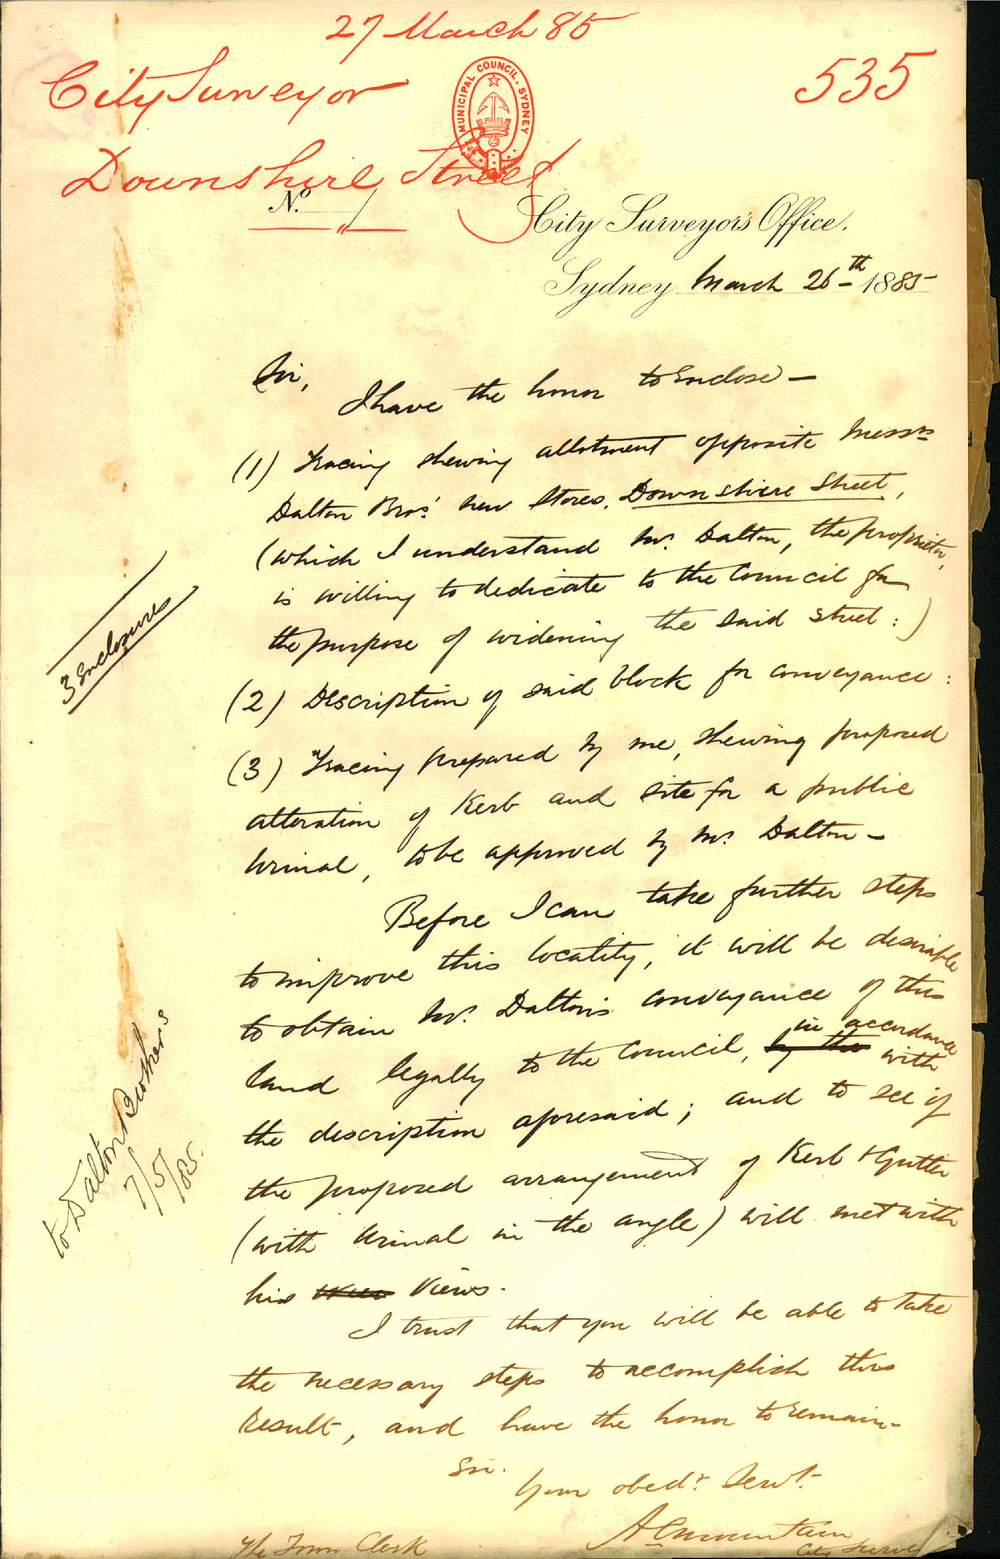 27 March 85
City Surveyor
535
MUNICIPAL COUNCIL. SYDNEY
Downshire Street
No.
City Surveyor's Office,
Sydney March 26th 1885
Sir,
I have the honor to Enclose —
(1) Tracing shewing allotment opposite Messrs
Dalton Bros' new Stores, Downshire Street,
(which I understand Mr. Dalton, the proprietor,
is willing to dedicate to the Council for
the purpose of widening the said street :)
(2) Description of said block for conveyance :
(3) Tracing prepared by me, shewing proposed
alteration of Kerb and site for a public
Urinal, to be approved by Mr. Dalton —
3 Enclosures
Before I can take further steps
to improve this locality, it will be desirable
to obtain Mr. Dalton's conveyance of this
land legally to the Council, by the in accordance with
the description aforesaid; and to see if
the proposed arrangement of Kerb & Gutter
(with Urinal in the angle) will met with
his views.
to Dalton Brothers
7/5/85.
I trust that you will be able to take
the necessary steps to accomplish this
result, and have the honor to remain —
Sir.
Your obedt. Servt.
A C Mountain
City Surve
The Town Clerk